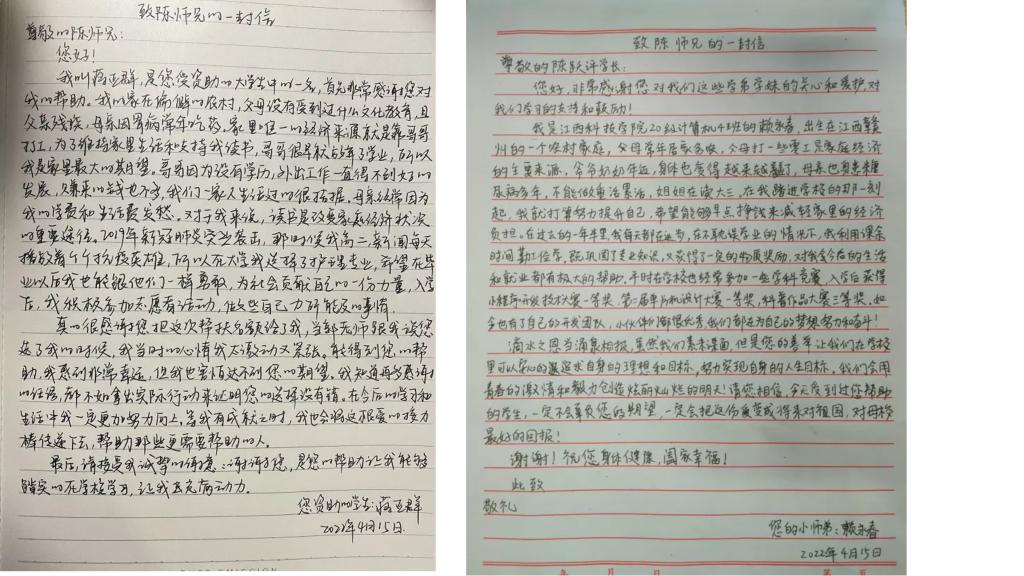 致陈师兄的一封信
尊敬的陈师兄：
您好！
我叫 亚群，是您受资助的大学生中的一名，首先非常感谢您对
我的帮助。我的家在偏僻的农村，父母没有受到过什么文化教育，且
父亲残疾，母亲因胃病常年吃药。家里唯一的经济来源就是靠哥哥
打工，为了维持家里生活和支持我读书，哥哥很早就放弃了学业，所以
我是家里最大的期望。哥哥因为没有学历，外出工作一直得不到好的
发展，赚来的钱也不多，我们一家人生活过的很拮据。母亲经常因为
我的学费和生活费发愁。对于我来说，读书是改变家庭经济状况
的重要途径。2019年新冠肺炎突发袭击，那时候我高三，新闻每天
播放着个个抗疫英雄，所以在大学我选择了护理专业，希望在毕
业以后我也能跟他们一样勇敢，为社会贡献自己的一份力量，入学
后，我积极参加志愿者活动，做些自己力所能及的事情。
真的很感谢您把这次帮扶名额给了我，当郝老师跟我说您
选了我的时候，我当时的心情我太激动又紧张。能得到您的帮
助，我感到非常幸运，但我也害怕达不到您的期望。我知道再多感谢
的话语，都不如拿出实际行动来证明您的选择没有错。在今后的学习和
生活中我一定更加努力向上。当我有成就之时，我也会将这根爱的接力
棒传递下去，帮助那些更需要帮助的人。
最后，请接受我诚挚的谢意：谢谢您，是您的帮助让我能够
踏实的在学校学习，让我更充满动力。
您资助的学生： 亚群
2022年4月15日
致陈师兄的一封信
尊敬的陈跃评学长：
您好，非常感谢您对我们这些学弟学妹的关心和爱护，对
我们学习的支持和鼓励！
我是江西科技学院20级计算机4班的赖永春，出生在江西赣
州的一个农村家庭，父母常年居家务农，父母打一些零工是家庭经济
的主要来源，爷爷奶奶年迈，身体也变得越来越 了，母亲也身患糖
尿病多年，不能做重活累活，姐姐在读大三，在我踏进学校的那一刻
起，我就打算努力提升自己，希望能够早点挣钱来减轻家里的经济
负担。在过去的一年半里，我每天都在进步，在不耽误学业的情况下，我利用课余
时间勤工俭学，既巩固了专业知识，又获得了一定的物质奖励，对我今后的生活
和就业都有极大的帮助。平时在学校也经常参加一些学科竞赛，入学后获得
小程序开发技术大赛一等奖，第一届单片机设计大赛一等奖，科普作品大赛三等奖。如
今也有了自己的开发团队，小伙伴们都很优秀，我们都在为自己的梦想努力和奋斗！
滴水之恩当涌泉相报，虽然我们素未谋面，但是您的善举让我们在学校
里可以安心的追逐求自身的理想和目标，努力实现自身的人生目标。我们会用
青春的激情和毅力创造炫丽灿烂的明天！请您相信，今天受到过您帮助
的学生，一定不会辜负您的期望，一定会把这份重荣或将来对祖国，对母校
最好的回报！
谢谢！祝您身体健康，阖家幸福！
此致
敬礼
您的小师弟：赖永春
2022年4月15日
年 月 日